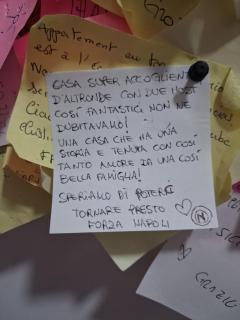 Appartement au
est à l'é
Ne
Ciao
CASA SUPER ACCOGLIENTE!
D'ALTRONDE CON DUE HOST
COSÍ FANTASTICI NON NE
DUBITAVAMO!
UNA CASA CHE HA UNA
STORIA E TENUTA CON COSÍ
TANTO AMORE DA UNA COSÍ
BELLA FAMIGLIA!
SPERIAMO DI POTERCI
TORNARE PRESTO
FORZA NAPOLI
N
GRAZIE